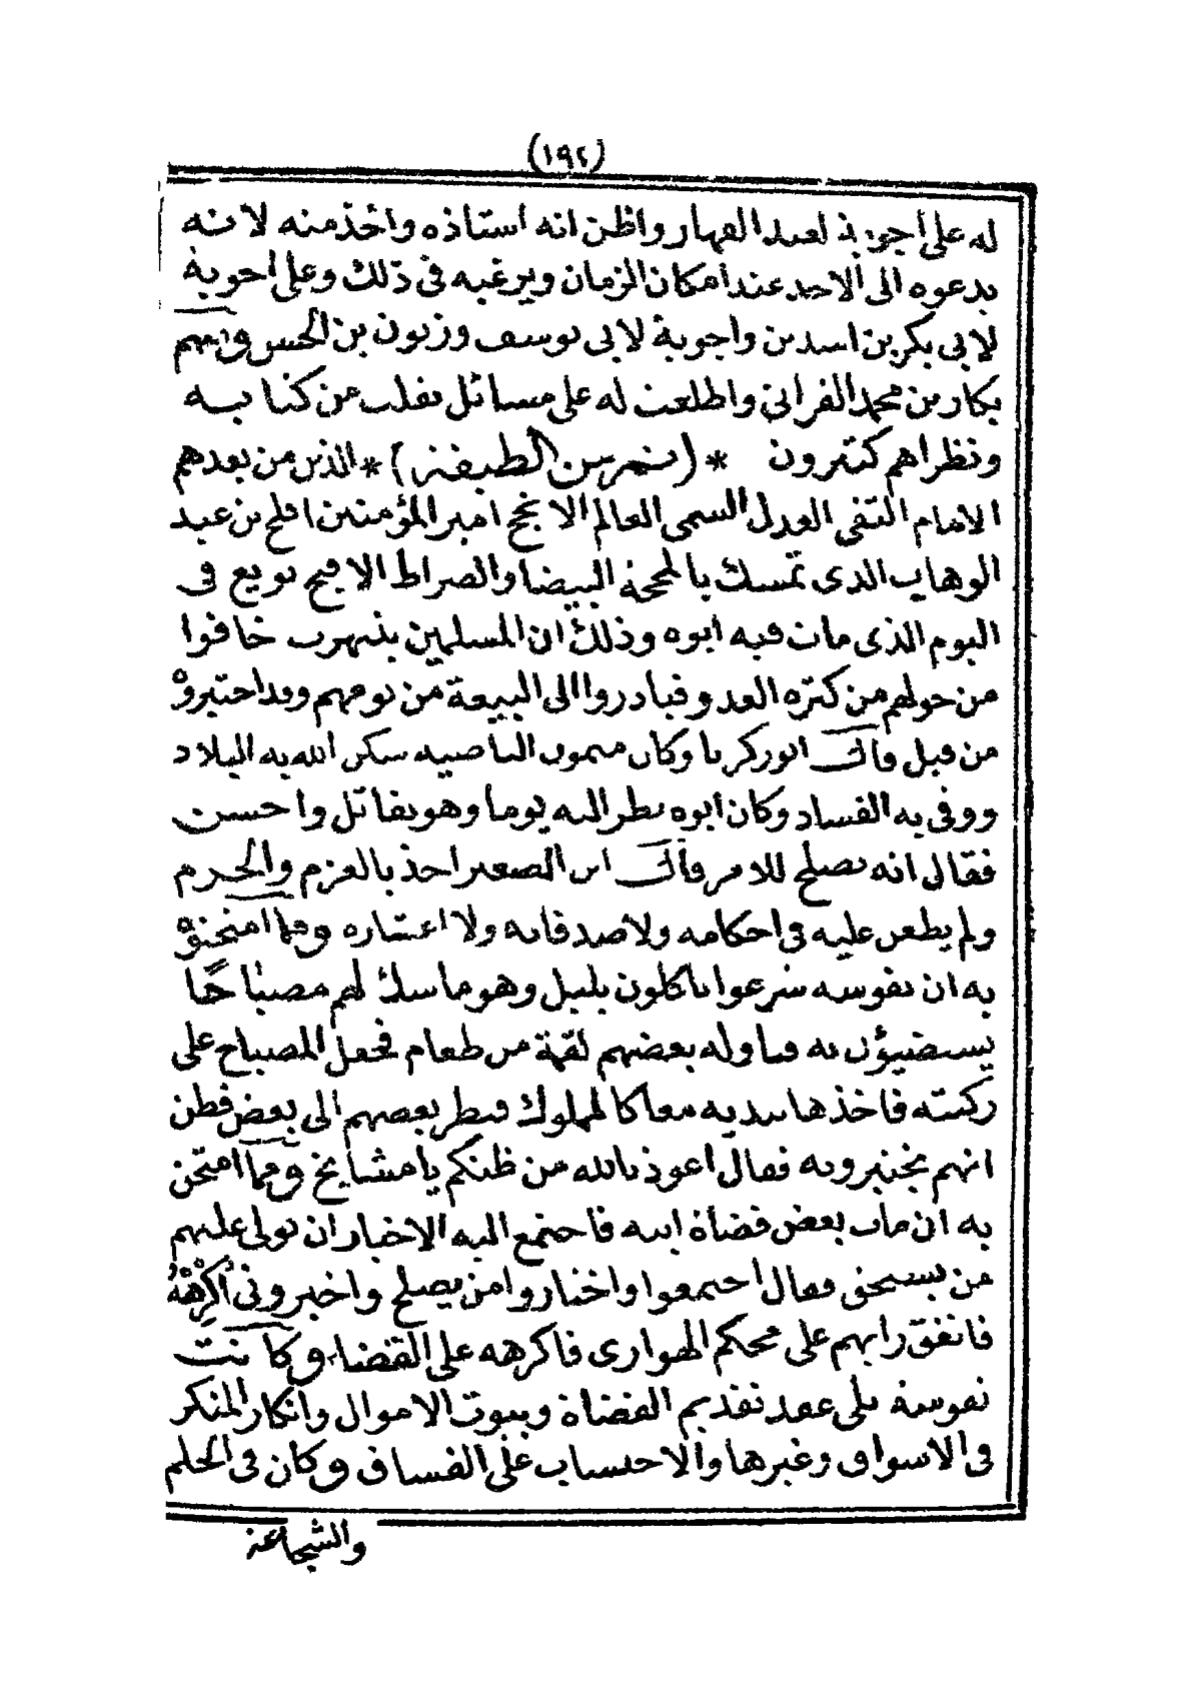 (١٩٢)
له على أجوبة لعبد القهار واظن انه استاذه واخذ منه لانه
يدعوه الى الاخذ عند امكان الزمان ويرغبه فى ذلك وعلى أجوبة
لابى بكر بن اسد بن واجوبة لابى يوسف وزنون بن الحسن ومنهم
بكار بن محمد الفزانى واطلعت له على مسائل نقلت من كتابيه
ونظراهم كثيرون * ( الطبقة ) * الذين من بعدهم
الامام التقى العدل السمى العالم الانجح امير المؤمنين افلح بن عبد
الوهاب الذى تمسك بالمحجة البيضا والصراط الافيح بويع فى
اليوم الذى مات فيه ابوه وذلك ان المسلمين بتيهرت خافوا
من حولهم من كثره العدو فبادروا الى البيعة من يومهم وقد اختبروه
من قبل قال ابوزكريا وكان ميمون الناصيه سكن الله به البلاد
ووقى به الفساد وكان ابوه ينظر اليه يوما وهو يقاتل واحسن
فقال انه يصلح للامر قال ابن الصغير اخذ بالعزم والحزم
ولم يطعن عليه فى احكامه ولا صدقاته ولا اعشاره ومما امتحنوه
به ان نفوسه شرعوا ياكلون بليل وهو ماسك لهم مصباحًا
يستضيؤن به فناوله بعضهم لقمة من طعام فجعل المصباح على
ركبته فاخذها بيديه معا كالمملوك فنظر بعضهم الى بعض فظن
انهم يختبرونه فقال اعوذ بالله من ظنكم يا مشايخ ومما امتحن
به ان مات بعض قضاة ابيه فاجتمع اليه الاخيار ان يولى عليهم
من يستحق فقال اجتمعوا واختاروا من يصلح واخبرونى أُكْرِهْهُ
فاتفق رايهم على محكم الهوارى فاكرهه على القضا وكانت
نفوسة تلى عقد تقديم القضاة وبيوت الاموال وانكار المنكر
فى الاسواق وغيرها والاحتساب على الفساق وكان فى الحلم
والشجاعة